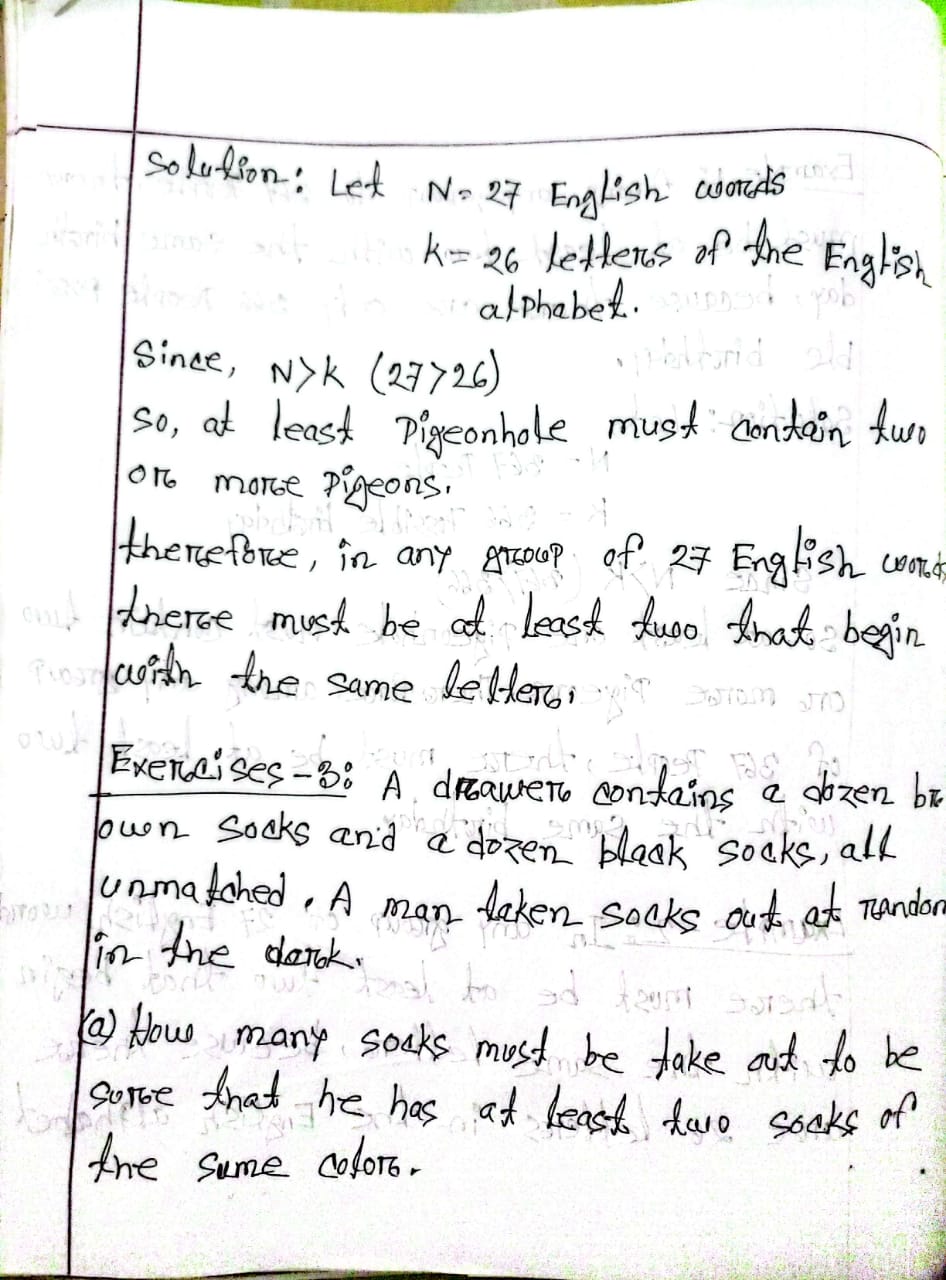 Solution: Let N = 27 English words
K = 26 letters of the English
alphabet.
Since, N>K (27>26)
So, at least Pigeonhole must contain two
or more Pigeons.
therefore, in any group of 27 English words
there must be at least two that begin
with the same letter.
Exercises-3: A drawer contains a dozen br
own socks and a dozen black socks, all
unmatched. A man taken socks out at random
in the dark.
(a) How many socks must be take out to be
sure that he has at least two socks of
the same color.